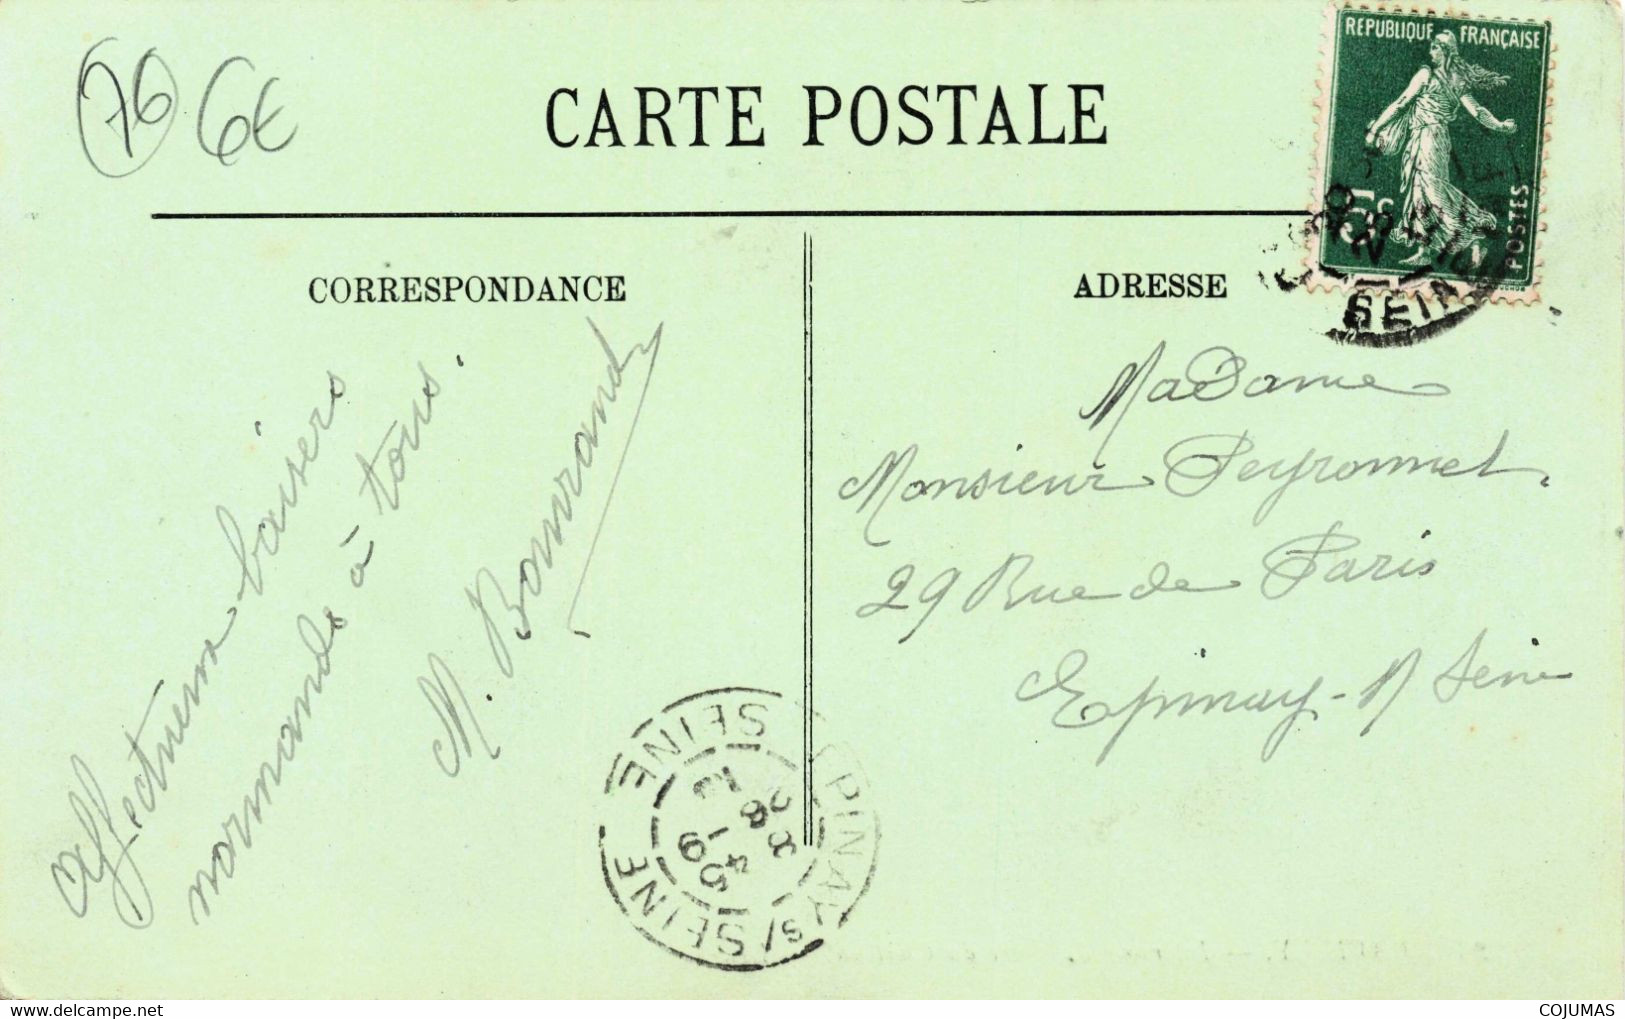 76 6€
CARTE POSTALE
REPUBLIQUE FRANÇAISE
5c
POSTES
SEINE
CORRESPONDANCE
ADRESSE
affectueux baisers
normands à tous.
M. Bourrand
MaDame
Monsieur Peyronnet.
29 Rue de Paris
Epinay-s/ Seine
EPINAY S/SEINE
SEINE
COJUMAS